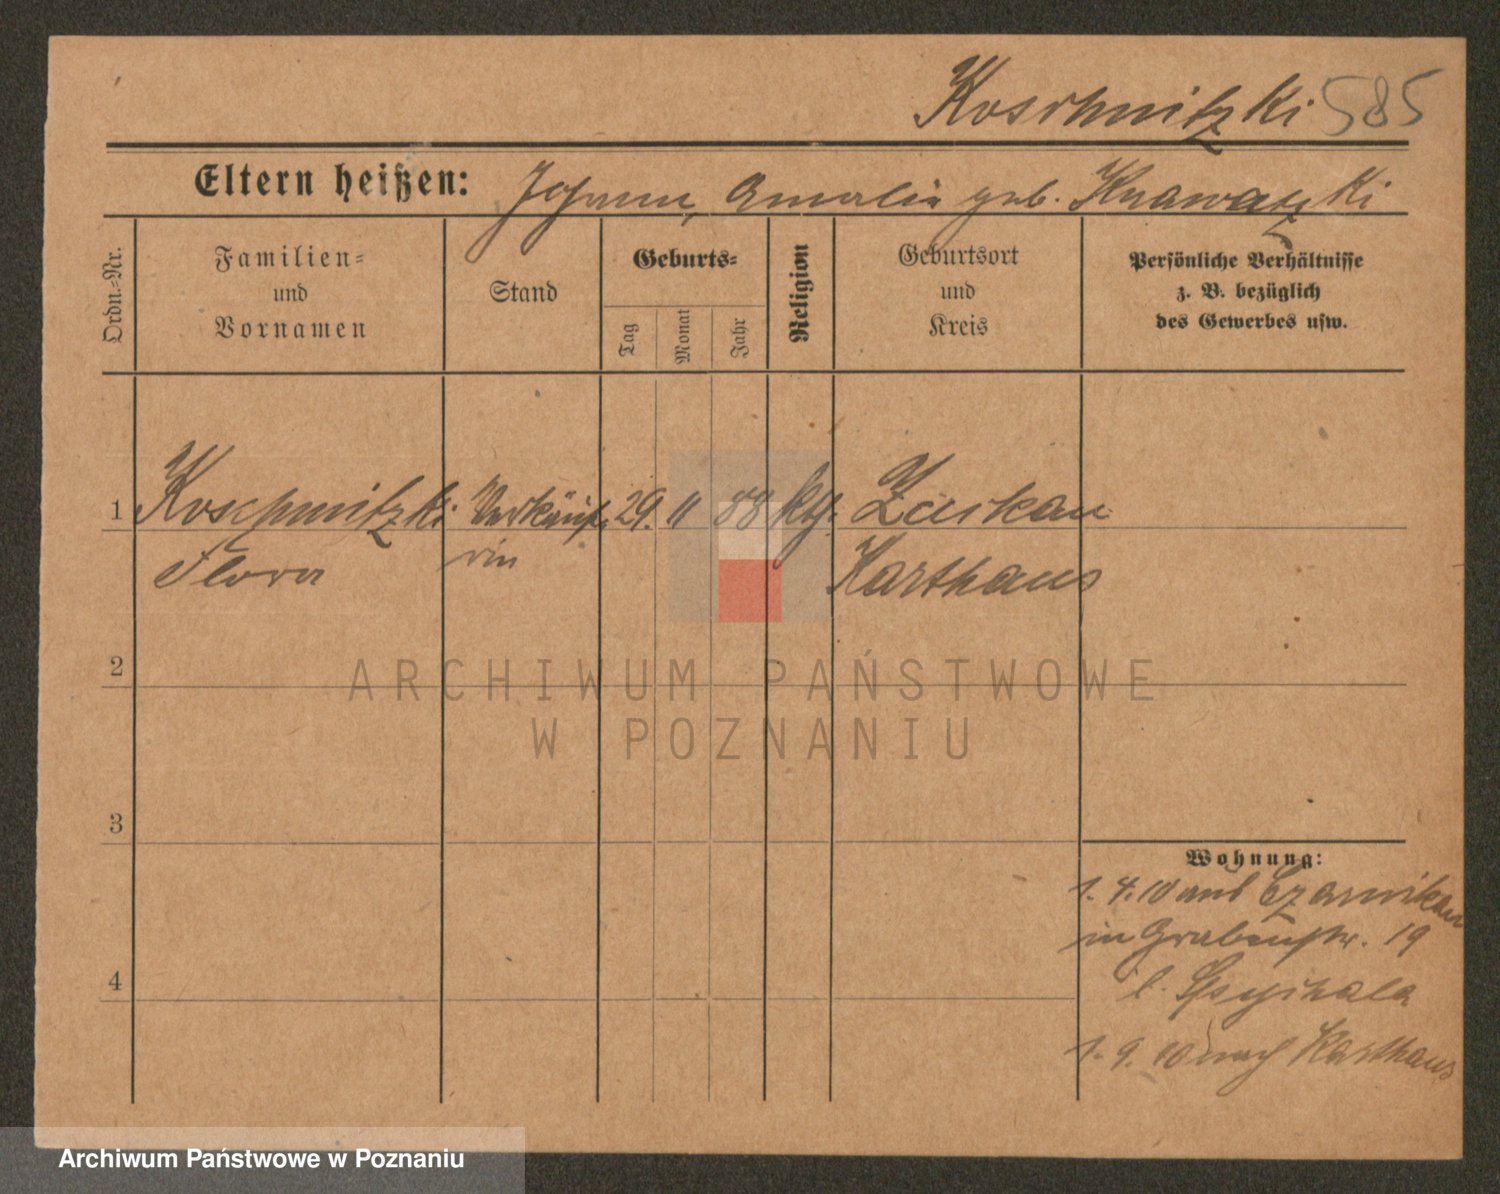 Koschnitzki 585
Eltern heißen: Johann, Amalie geb.
Ordn.-Nr.
Familien-
und
Vornamen
Stand
Geburts-
Tag
Monat
Jahr
Religion
Geburtsort
und
Kreis
Persönliche Verhältnisse
z. B. bezüglich
des Gewerbes usw.
1 Koschnitzki Verkäufe 29. 11 88 kth. Zuckau
Flora rin Karthaus
2
ARCHIWUM PAŃSTWOWE
W POZNANIU
3
Wohnung:
1. 4. 10 aus Czarnikau
in Grabenstr. 19
b.
4
1. 9. 10 nach Karthaus
Archiwum Państwowe w Poznaniu